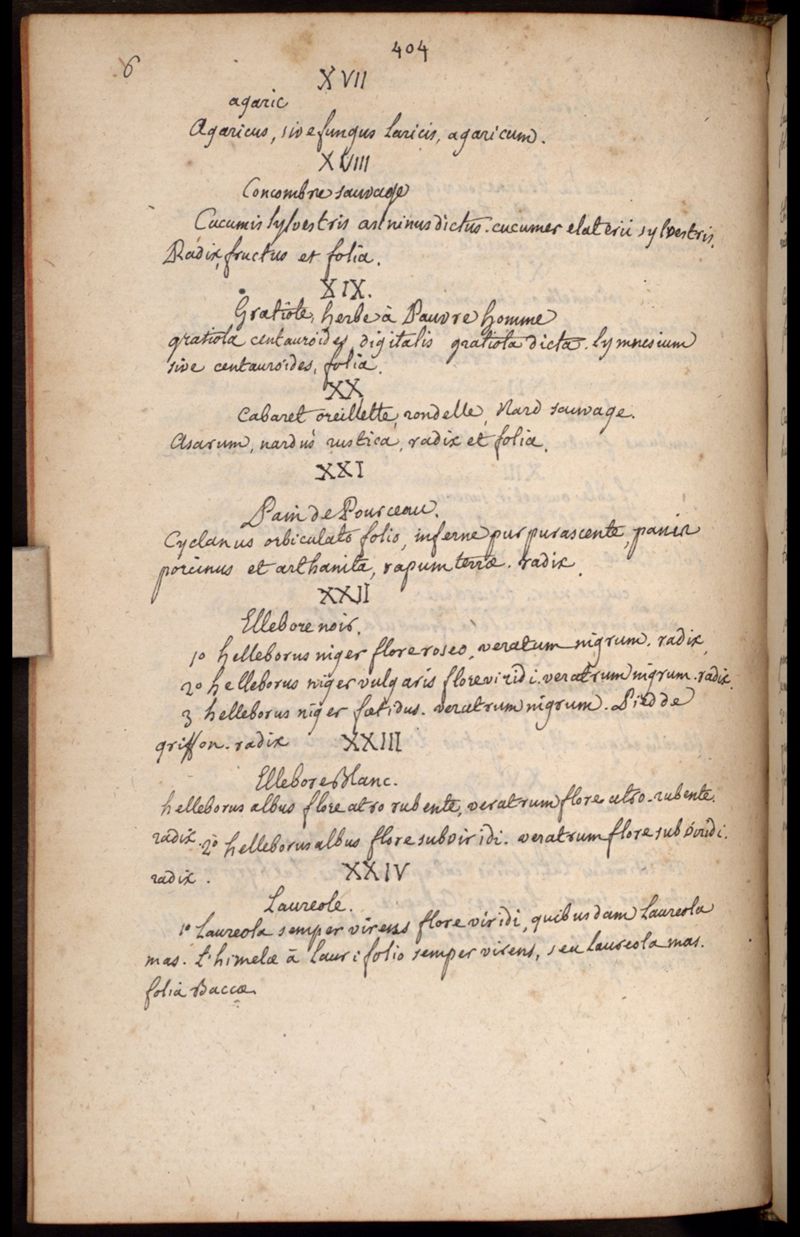 404
6
XVII
agaric
Agaricus, sive fungus laricis, agaricum.
XVIII
Concombre sauvage
Cucumis sylvestris asininus dictus. cucumer elaterii sylvestris.
Radix, fructus et folia.
XIX.
Gratiole, herbe à Pauvre homme
gratiola centauroides, digitalis gratiola dicta. lymnesium
sive centauroides, folia.
XX
Cabaret oreillette, rondelle, Nard sauvage.
Asarum, nardus rustica, radix et folia.
XXI
Pain de Pourceau.
Cyclanus orbiculato folio, inferne purpurascente, panis
porcinus et arthanita, rapum terræ. radix.
XXII
Ellebore noir.
1o helleborus niger flore roseo, veratum nigrum. radix,
2o helleborus niger vulgaris flore viridi. veratrum nigrum. radix.
3 helleborus niger fœtidus. veratrum nigrum. Pied de
griffon. radix XXIII
Ellebore Blanc.
helleborus albus flore atro rubente, veratrum flore atro-rubente.
radix. 2o helleborus albus flore subviridi. veratrum flore subviridi.
radix. XXIV
Laureole.
1o Laureola semper virens flore viridi, quibusdam Laureola
mas. thimelæ à lauri folio semper virens, seu laureola mas.
folia Baccæ.